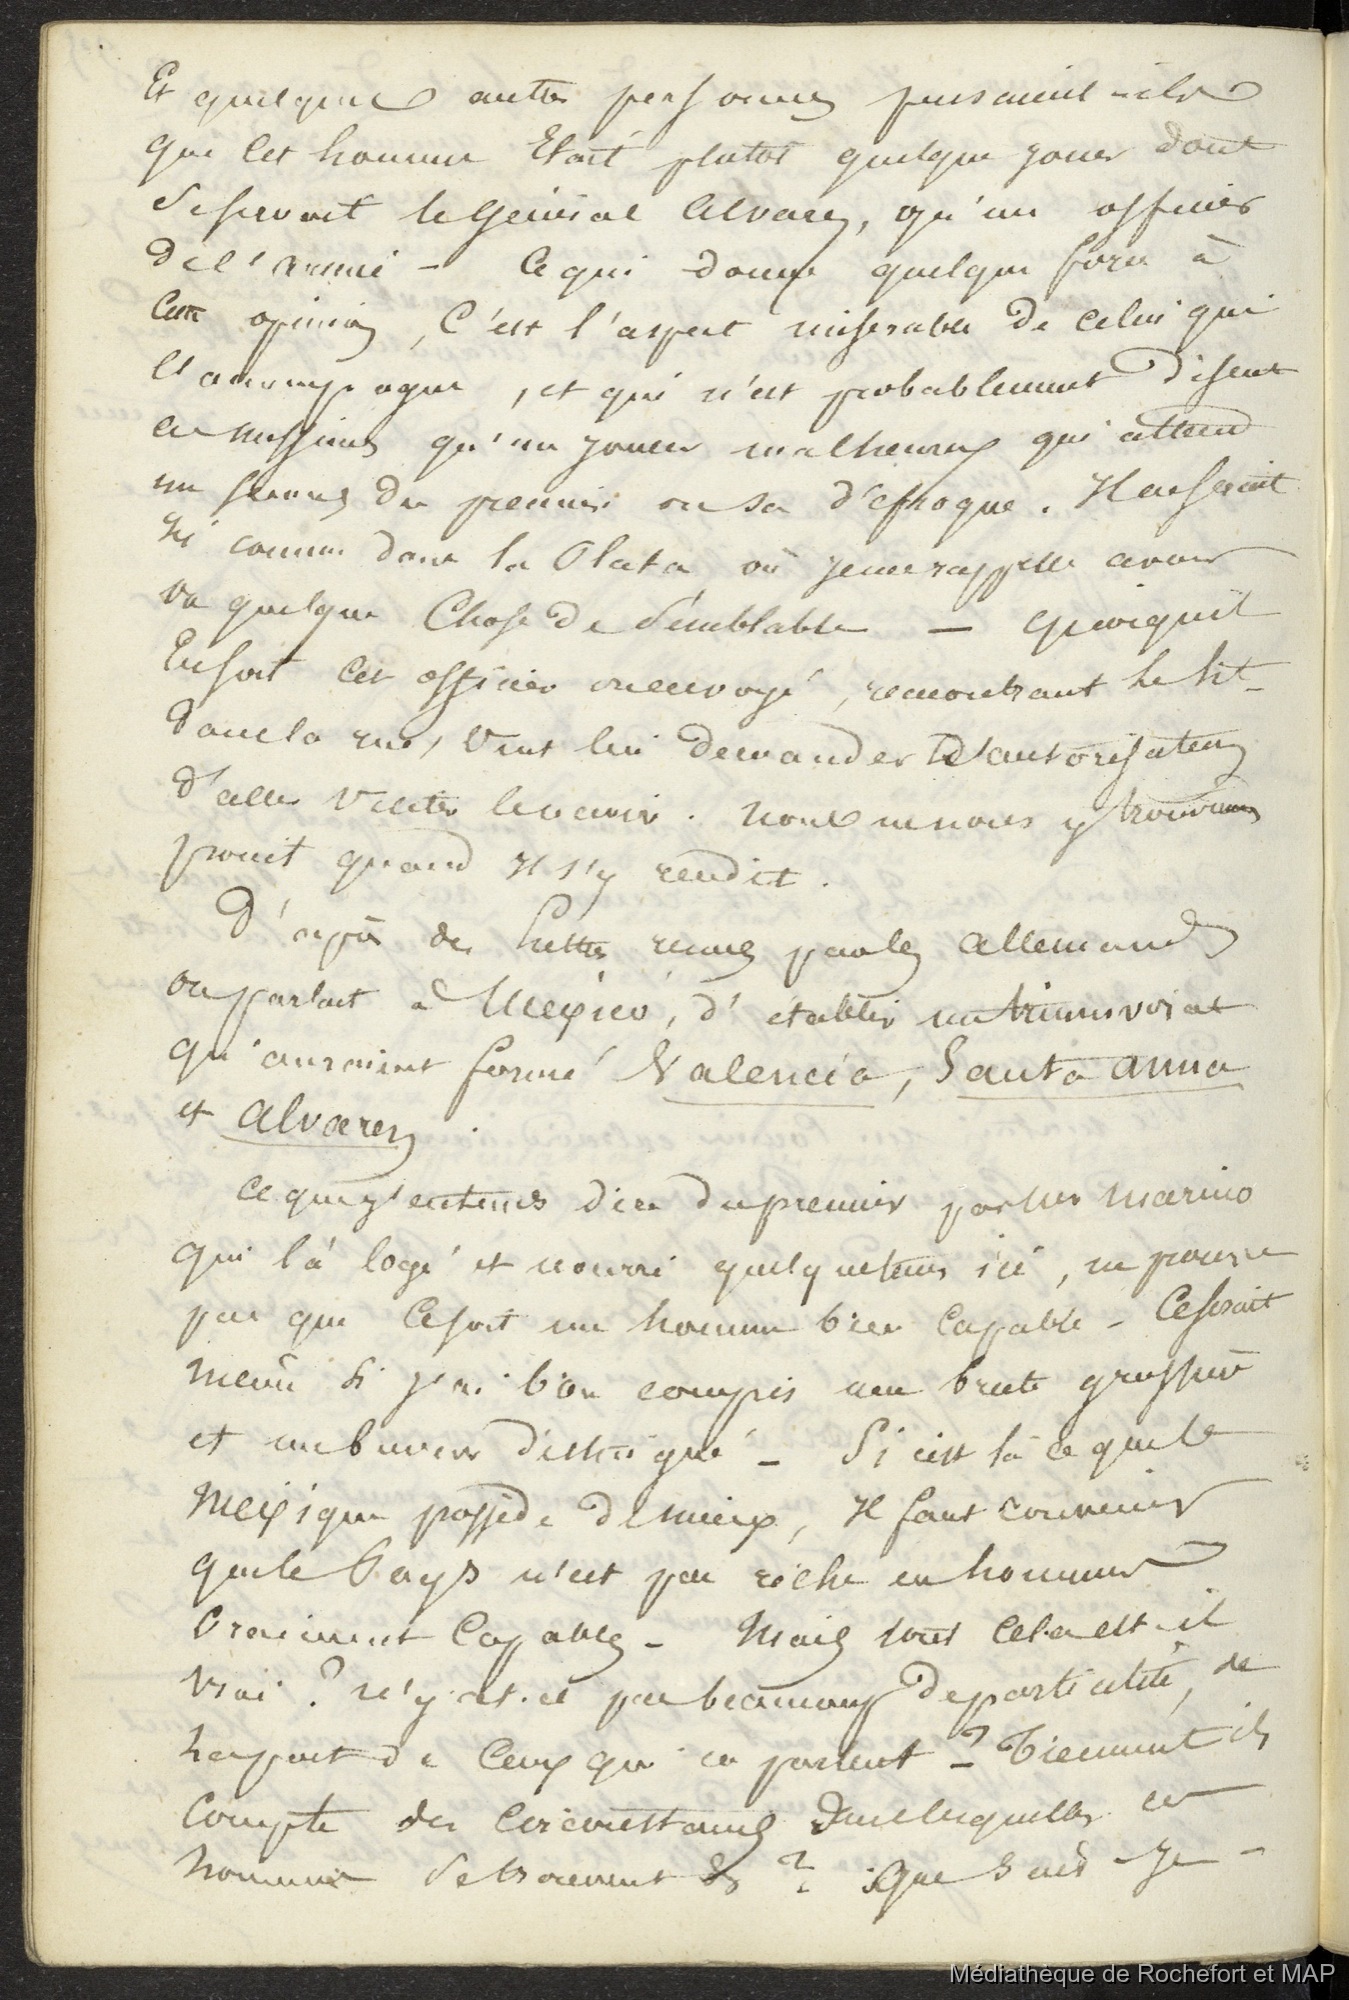 Et quelques autres personnes pensaient-ils
que cet homme Etait plutot quelque joueur dont
se servait le Général Alvarez, qu'un officier
de l'armée - Ce qui donne quelque force à
cette opinion, C'est l'aspect miserable de celui qui
l'accompagne, et qui n'est probablement disent
ces messieurs qu'un joueur malheureux qui attend
un secours du premier ou sa défroque. Il en serait
ici comme dans la Plata où je me rappelle avoir
vu quelque Chose de Semblable - Quoiqu'il
En soit cet officier ou envoyé, rencontrant le lit-
dans la rue, Vint lui demander l'autorisation
d'aller visiter le navire. nous ne nous y trouvames
point quand Il s'y rendit.
D'après des lettres reçues par les allemands
on parlait à Mexico, d'établir un triumvirat
qu'auraient formé Valencia, Santa anna
et Alvarez.
Ce que j'entends dire du premier par mr marino
qui l'a logé et nourri quelque tems ici, ne prouve
pas que Ce soit un homme bien Capable - Ce serait
même si j'ai bien compris une brute grossière
et un buveur distingué - Si c'est là ce que le
Mexique possède de mieux, Il faut convenir
que le Pays n'est pas riche en hommes
vraiment Capables - Mais tout Cela est-il
vrai ? n'y a-t-il pas beaucoup de partialité, de
la part de Ceux qui en parlent - ? Tiennent ils
Compte des Circonstances dans lesquelles ces
hommes se trouvent ? Que sais-je -
Médiathèque de Rochefort et MAP